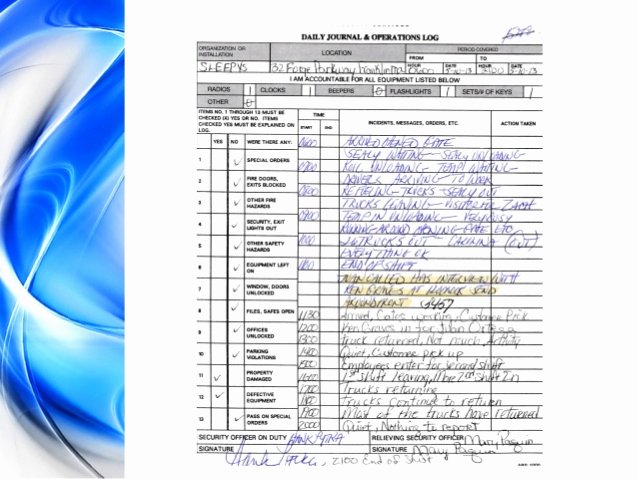 DAILY JOURNAL & OPERATIONS LOG
ORGANIZATION OR INSTALLATION
LOCATION
PERIOD COVERED
FROM
TO
SLEEPY'S
32 Forge Parkway Franklin Ma
HOUR
DATE 5-10-13
HOUR 2100
DATE 5-10-13
I AM ACCOUNTABLE FOR ALL EQUIPMENT LISTED BELOW
RADIOS 1 CLOCKS 1 BEEPERS 0 FLASHLIGHTS 1 SETS/# OF KEYS 1
OTHER 0
ITEMS NO. 1 THROUGH 13 MUST BE
CHECKED (X) YES OR NO. ITEMS
CHECKED YES MUST BE EXPLAINED ON
LOG.
TIME
START END
INCIDENTS, MESSAGES, ORDERS, ETC.
ACTION TAKEN
YES NO WERE THERE ANY:
1 SPECIAL ORDERS
2 FIRE DOORS, EXITS BLOCKED
3 OTHER FIRE HAZARDS
4 SECURITY, EXIT LIGHTS OUT
5 OTHER SAFETY HAZARDS
6 EQUIPMENT LEFT ON
7 WINDOW, DOORS UNLOCKED
8 FILES, SAFES OPEN
9 OFFICES UNLOCKED
10 PARKING VIOLATIONS
11 PROPERTY DAMAGED
12 DEFECTIVE EQUIPMENT
13 PASS ON SPECIAL ORDERS
0600 ARRIVED OPENED GATE
SEALY WAITING - SEALY UNLOADING
0700 UNLOADING - TEMP WAITING
DRIVERS ARRIVING TO WORK
0800 REFUELING - TRUCKS - SEALY OUT
TRUCKS LEAVING - VISITOR FOR ZACH
0900 TEMP IN UNLOADING - VERY BUSY
RUNNING AROUND OPENING GATE ETC
1000 TRUCKS OUT - (OUT)
EVERYTHING OK
END OF SHIFT
CALLED HAS INTERVIEW WITH
KEN GRAVES AT SEND
1130 Arrived, Gates working, Customer Pick
1200 Ken Graves in for Juan Ortega
1300 Truck returned, Not much Activity
1400 Quiet, Customer pick up
1500 Employees enter for second shift
1600 1st shift leaving, More 2nd shift In
1700 Trucks returning
1800 Trucks continue to return
1900 Most of the trucks have returned
2000 Quiet, Nothing to report
SECURITY OFFICER ON DUTY HANK
RELIEVING SECURITY OFFICER Mary
SIGNATURE Hank
SIGNATURE Mary
2100 End of Shift